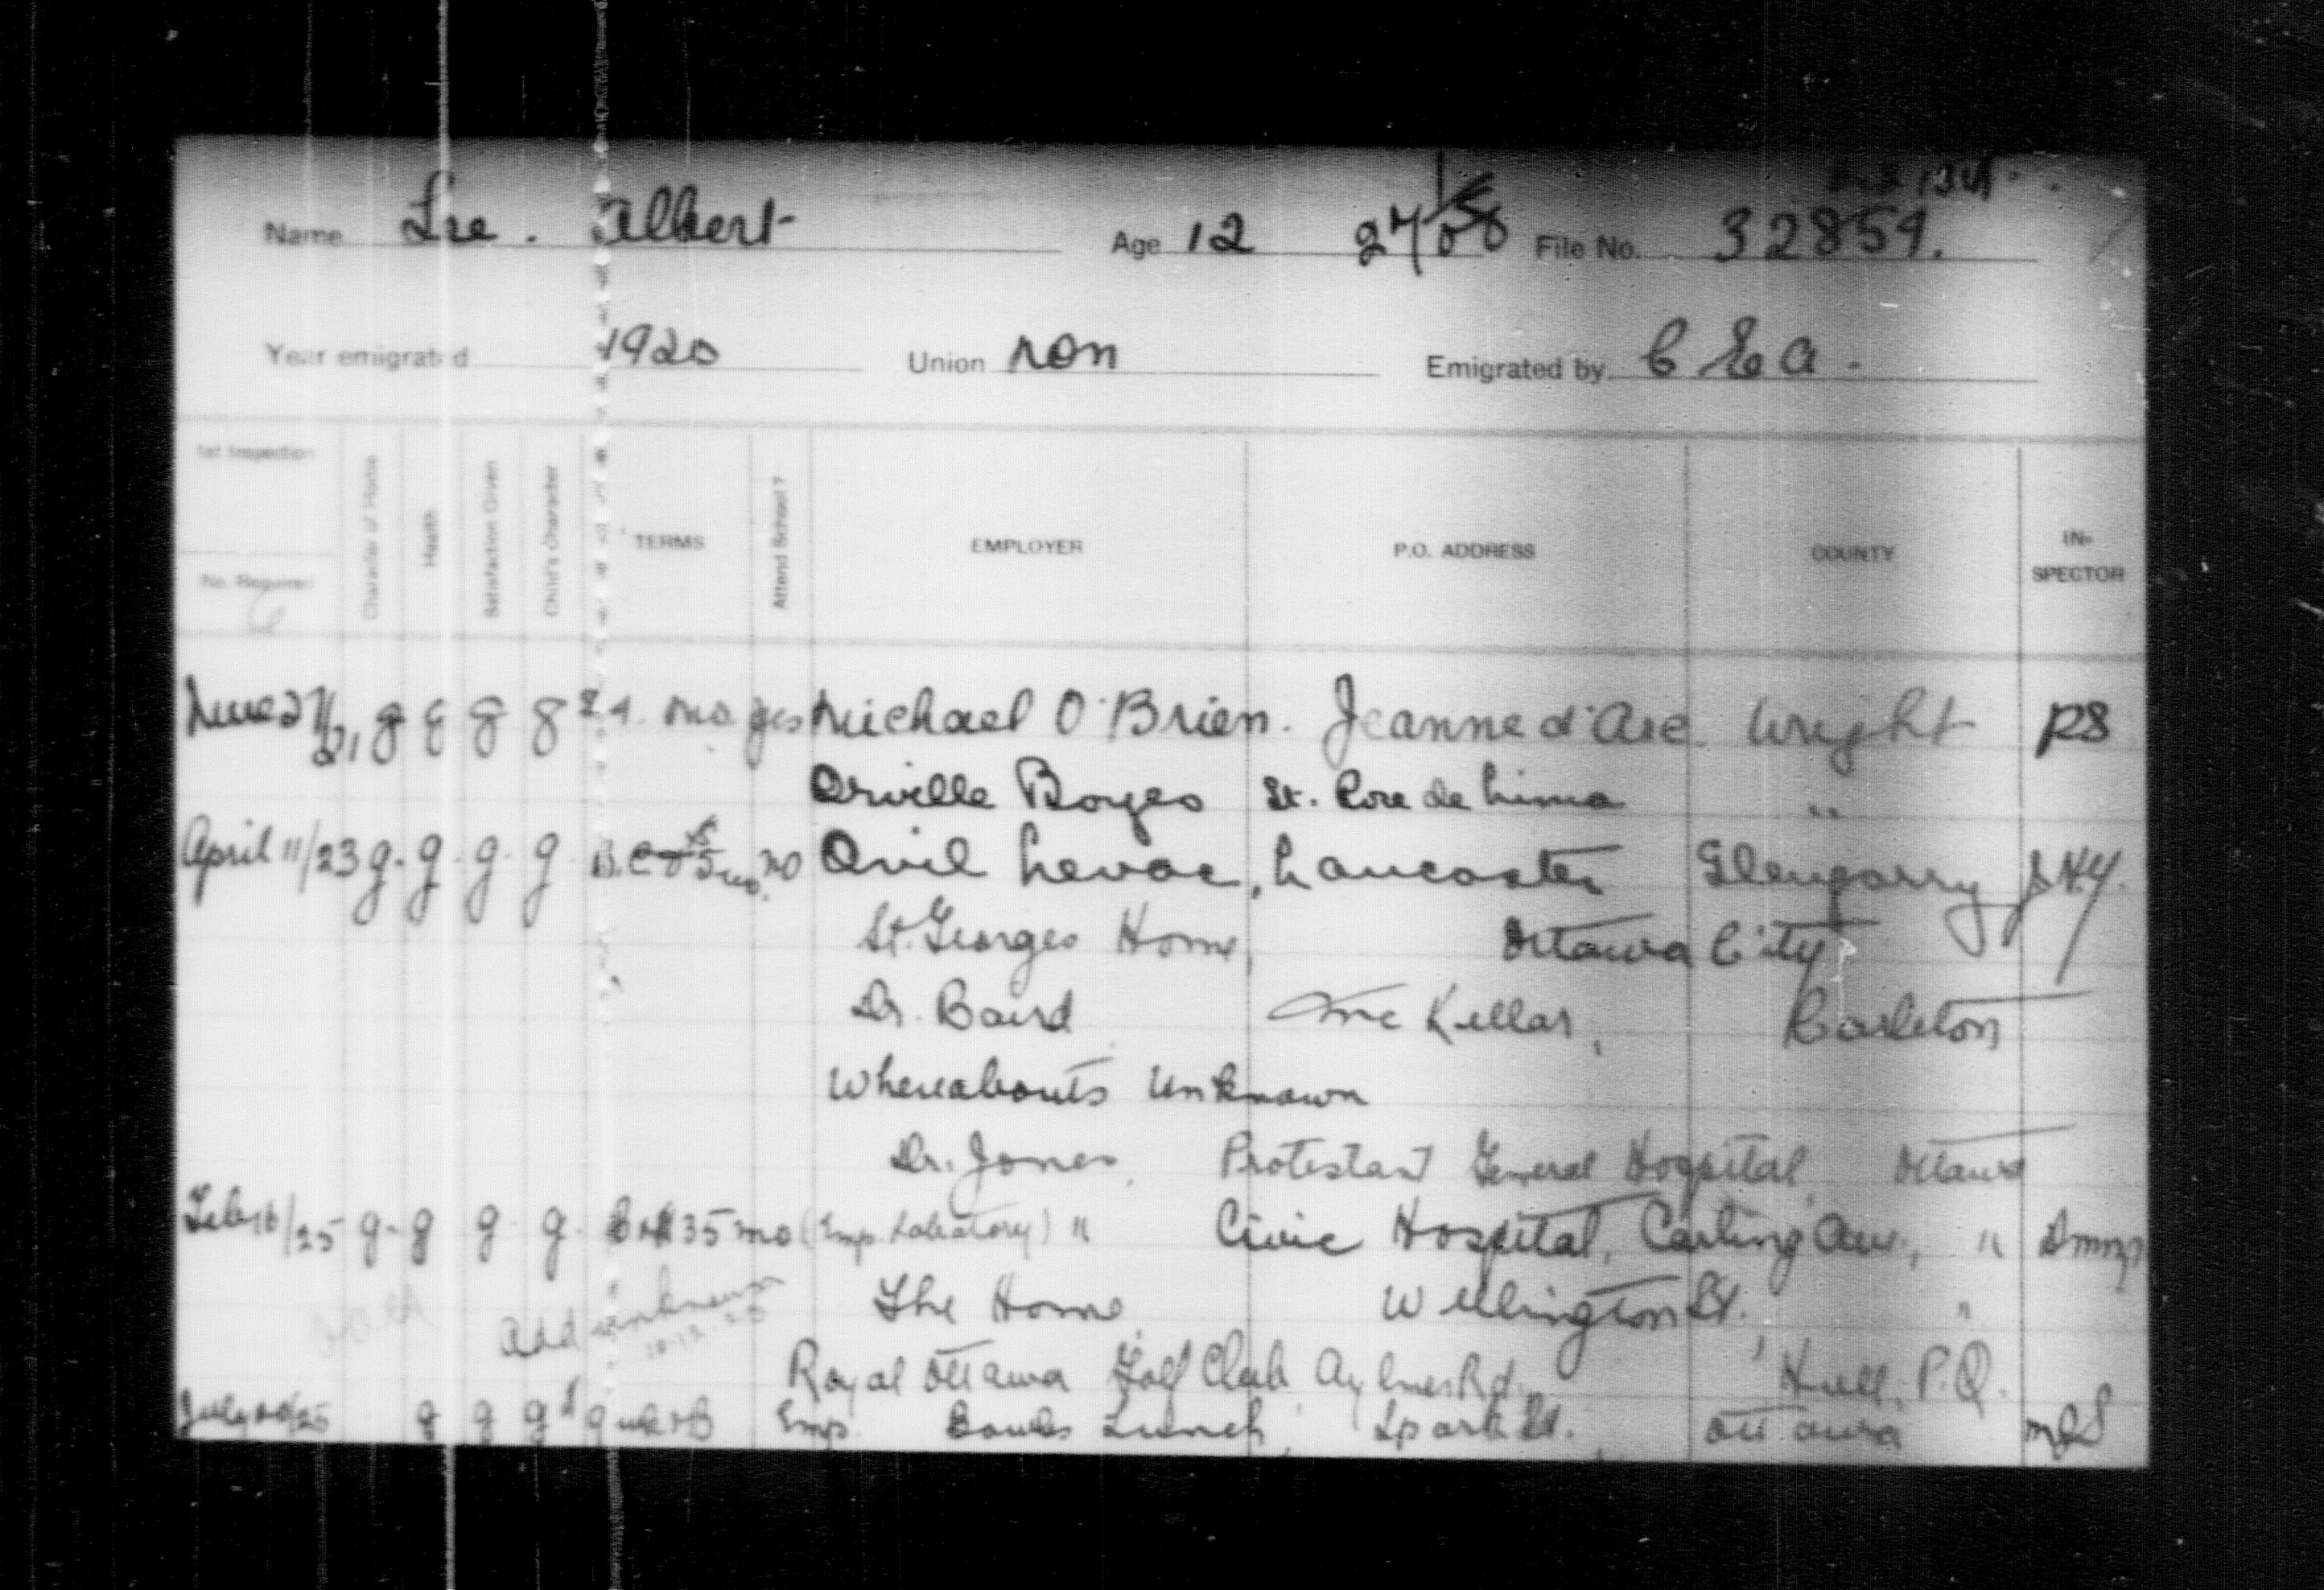 Name Lee. Albert Age 12 27/1/08 File No. 32854.
Year emigrated 1920 Union non Emigrated by C E A.
1st Inspection
No. Required 6
Character of Home
Health
Satisfaction Given
Child's Character
TERMS
Attend School?
EMPLOYER
P.O. ADDRESS
COUNTY
IN-SPECTOR
June 27/21 g g g g mo yes Michael O'Brien. Jeanne d'Arc Wright
Orville Boyes St. Rose de Lima "
April 11/23 g. g. g. g. no Ovil Levac, Lancaster Glengarry
St. Georges Home, Ottawa City
Dr. Baird McKellar, Carleton
Whereabouts Unknown
Dr. Jones, Protestant General Hospital, Ottawa
Feb 16/25 g. g g. g. 35 mo (Emp. Labratory) " Civic Hospital, Carling Ave., "
The Home Wellington St. "
Add unknown
Royal Ottawa Golf Club, Aylmer Rd., Hull, P.Q.
July /25 g g g Emp. Bowles Lunch, Spark St. Ottawa